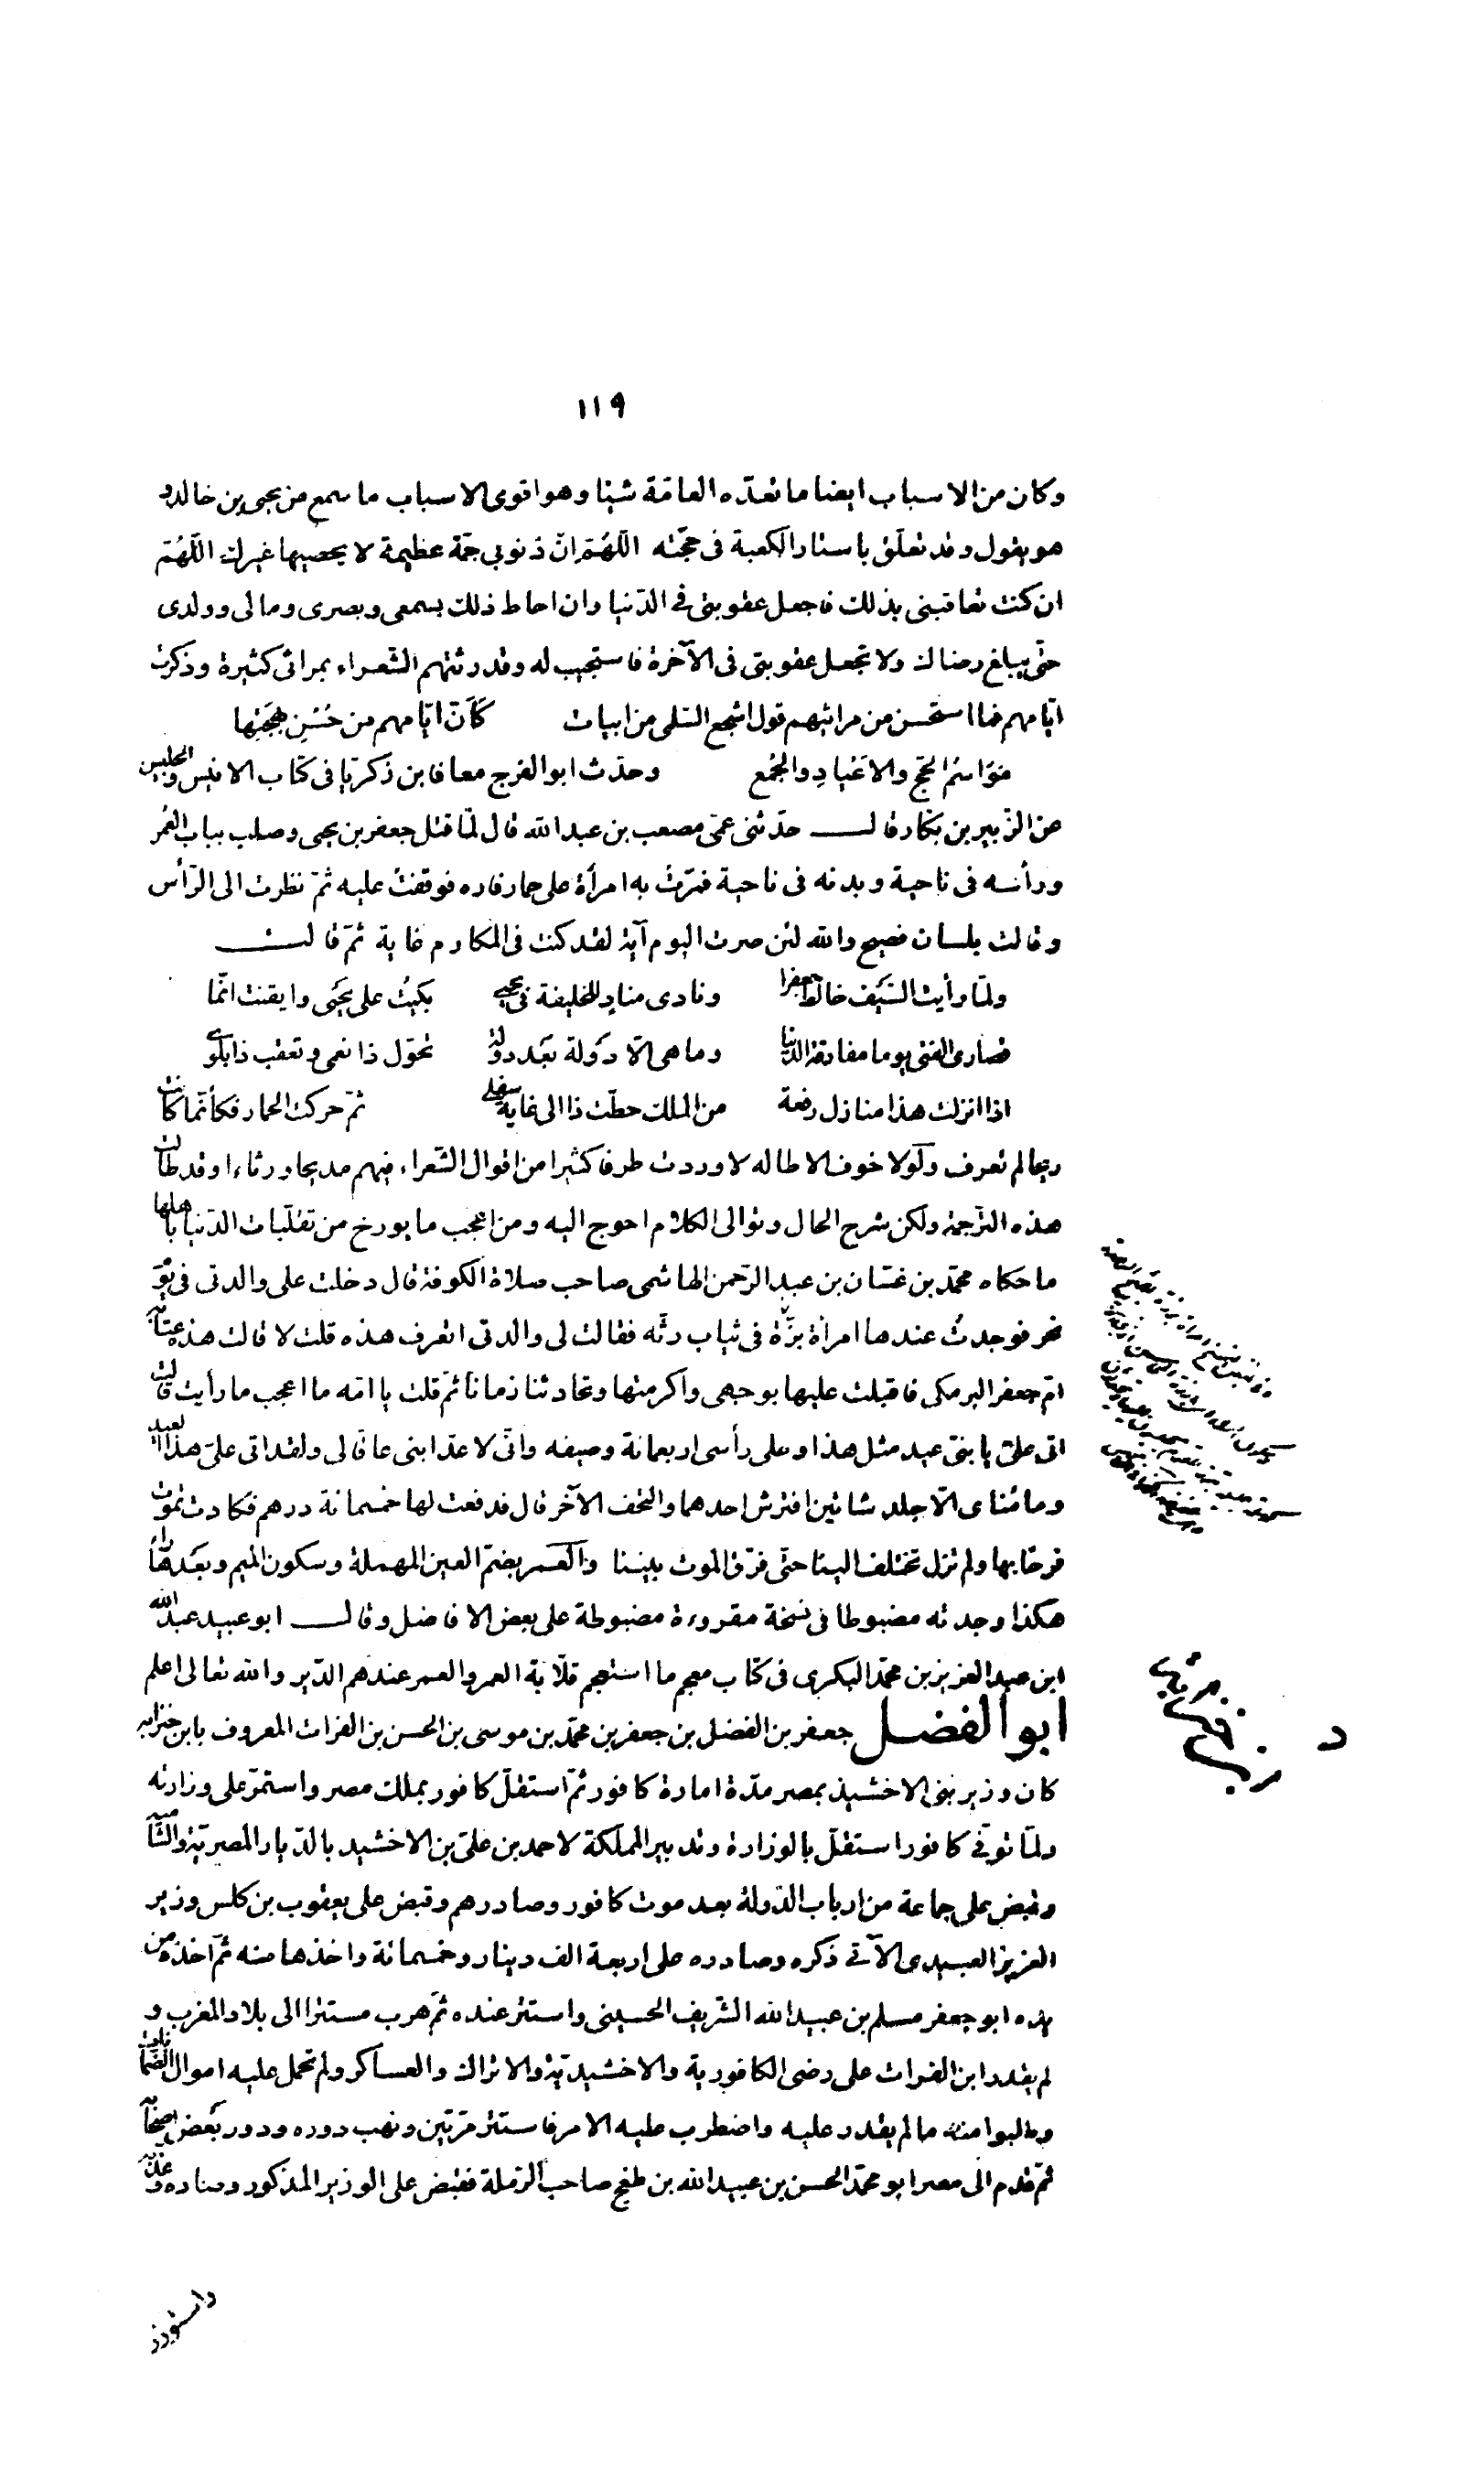 ١١٩
وكان من الاسباب ايضا ما تعدّه العامّة شيئا وهو اقوى الاسباب ما سمع من يحيى بن خالد و
هو يقول وقد تعلّق باستار الكعبة فى حجّته اللّهُمّ انّ ذنوبى جمّة عظيمة لا يحصيها غيرك اللّهُمّ
ان كنت تعاقبنى بذلك فاجعل عقوبتى فى الدّنيا وان احاط ذلك بسمعى وبصرى ومالى وولدى
حتّى يبلغ رضاك ولا تجعل عقوبتى فى الآخرة فاستجيب له وقد رثتهم الشّعراء بمراثى كثيرة وذكرت
ايّامهم فما استحسن من مراثيهم قول اشجع السّلمى من ابيات كَأَنّ ايّامهم من حُسْنِ بهجَتِها
مَوَاسِمُ الحَجّ والاَعْيادِ والجُمَعِ وحدّث ابو الفرج معافا بن زكريّا فى كتاب الانيس والجليس
عن الزّبير بن بكّار قال حدّثنى عمّى مصعب بن عبد الله قال لمّا قتل جعفر بن يحيى وصلب بباب العُمر
ورأسه فى ناحية وبدنه فى ناحية فمرّت به امرأة على حمار فاره فوقفت عليه ثمّ نظرت الى الرّأس
وقالت بلسان فصيح والله لئن صرت اليوم آية لقد كنت فى المكارم غاية ثمّ قالت
ولمّا رأيت السّيف خالط جعفرا ونادى منادٍ للخليفة فى يحيى بكيتُ على يَحْيَى وايقنت انّما
قصارى الفتى يوما مفارقة الدّنيا وما هى الّا دَولة بَعْد دولة تخوّل ذا نعمى وتعقب ذا بلوى
اذا انزلت هذا منازل رفعة من الملك حطّت ذا الى غاية سفلى ثمّ حركت الحمار فكأنّما كانت
ريحا لم تعرف ولَولا خوف الاطاله لاوردت طرفا كثيرا من اقوال الشّعراء فيهم مديحا ورثاءا وقد طالت
هذه التّرجمة ولكن شرح الحال وتوالى الكلام احوج اليه ومن اعجب ما يورخ من تقلّبات الدّنيا باهلها
ما حكاه محمّد بن غسّان بن عبد الرّحمن الهاشمى صاحب صلاة الكوفة قال دخلت على والدتى فى يوم
نحر فوجدتُ عندها امرأة برزة فى ثياب رثّه فقالت لى والدتى اتعرف هذه قلت لا قالت هذه عتّابة
امّ جعفر البرمكى فاقبلت عليها بوجهى واكرمتها وتحادثنا زمانا ثمّ قلت يا امّه ما اعجب ما رأيت قالت
اتى علىّ يا بنىّ عيد مثل هذا وعلى رأسى اربعمائة وصيفه وانّى لاعدّ ابنى عاقا لى ولقد اتى علىّ هذا العيد
وما مُناى الّا جلد شاتين افترش احدهما والتحف الآخر قال فدفعت لها خمسمائة درهم فكادت تموت
فرحًا بها ولم تزل تختلف الينا حتّى فرّق الموت بيننا والعمر بضمّ العين المهملة وسكون الميم وبعدها راء
هكذا وجدته مضبوطا فى نسخة مقروءة مضبوطة على بعض الافاضل وقال ابو عبيد عبد الله
ابن عبد العزيز بن محمّد البكرى فى كتاب معجم ما استعجم قلّاية العمر والعمر عندهم الدّير والله تعالى اعلم
ابو الفضل جعفر بن الفضل بن جعفر بن محمّد بن موسى بن الحسن بن الفرات المعروف بابن حنزابه
كان وزير بنى الاخشيد بمصر مدّة امارة كافور ثمّ استقلّ كافور بملك مصر واستمرّ على وزارته
ولمّا توفّى كافور استقلّ بالوزارة وتدبير المملكة لاحمد بن علىّ بن الاخشيد بالدّيار المصريّة والشّاميّة
وقبض على جماعة من ارباب الدّولة بعد موت كافور وصادرهم وقبض على يعقوب بن كلس وزير
العزيز العبيدى الآتى ذكره وصادره على اربعة الف دينار وخمسمائة واخذها منه ثمّ اخذه من
يده ابو جعفر مسلم بن عبيد الله الشّريف الحسينى واستتر عنده ثمّ هرب مستترا الى بلاد المغرب و
لم يقدر ابن الفرات على رضى الكافورية والاخشيديّة والاتراك والعساكر ولم تحمل عليه اموال الضّمانات
وطلبوا منه ما لم يقدر عليه واضطرب عليه الامر فاستتر مرّتين ونهب دوره ودور بَعْض اصحابه
ثمّ قدم الى مصر ابو محمّد الحسن بن عبيد الله بن طغج صاحب الرّملة فقبض على الوزير المذكور وصادره وعذّبه